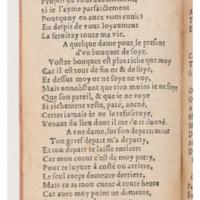 si ie l'ayme parfaictement
Pourquoy en auez vous ennuy?
En despit de vous loyaument
La seruiray toute ma vie.
A quelque dame pour le present
d'vn bouquet de soye.
Vostre bouquet est plus riche que moy
Car il est tout de fin or & de soye,
Et dessus moy or ne soye ne voy,
Mais nonobstant que rien moins ie ne soye
Que son pareil, & que ie ne voye
Si richement vestu, paré, aorné,
Certes iamais ie ne le refuseroye,
Venant du lieu dont il me a donné.
A vne dame, sur son departement
Ton grief depart m'a departy,
Et ton depart te laisse entiere:
Car mon cueur c'est de moy party,
Pour y toufiours te faire priere,
Le seul corps demeure derriere,
Mais tu as mon cueur à toute heure
Car auec moy point ne demeure,